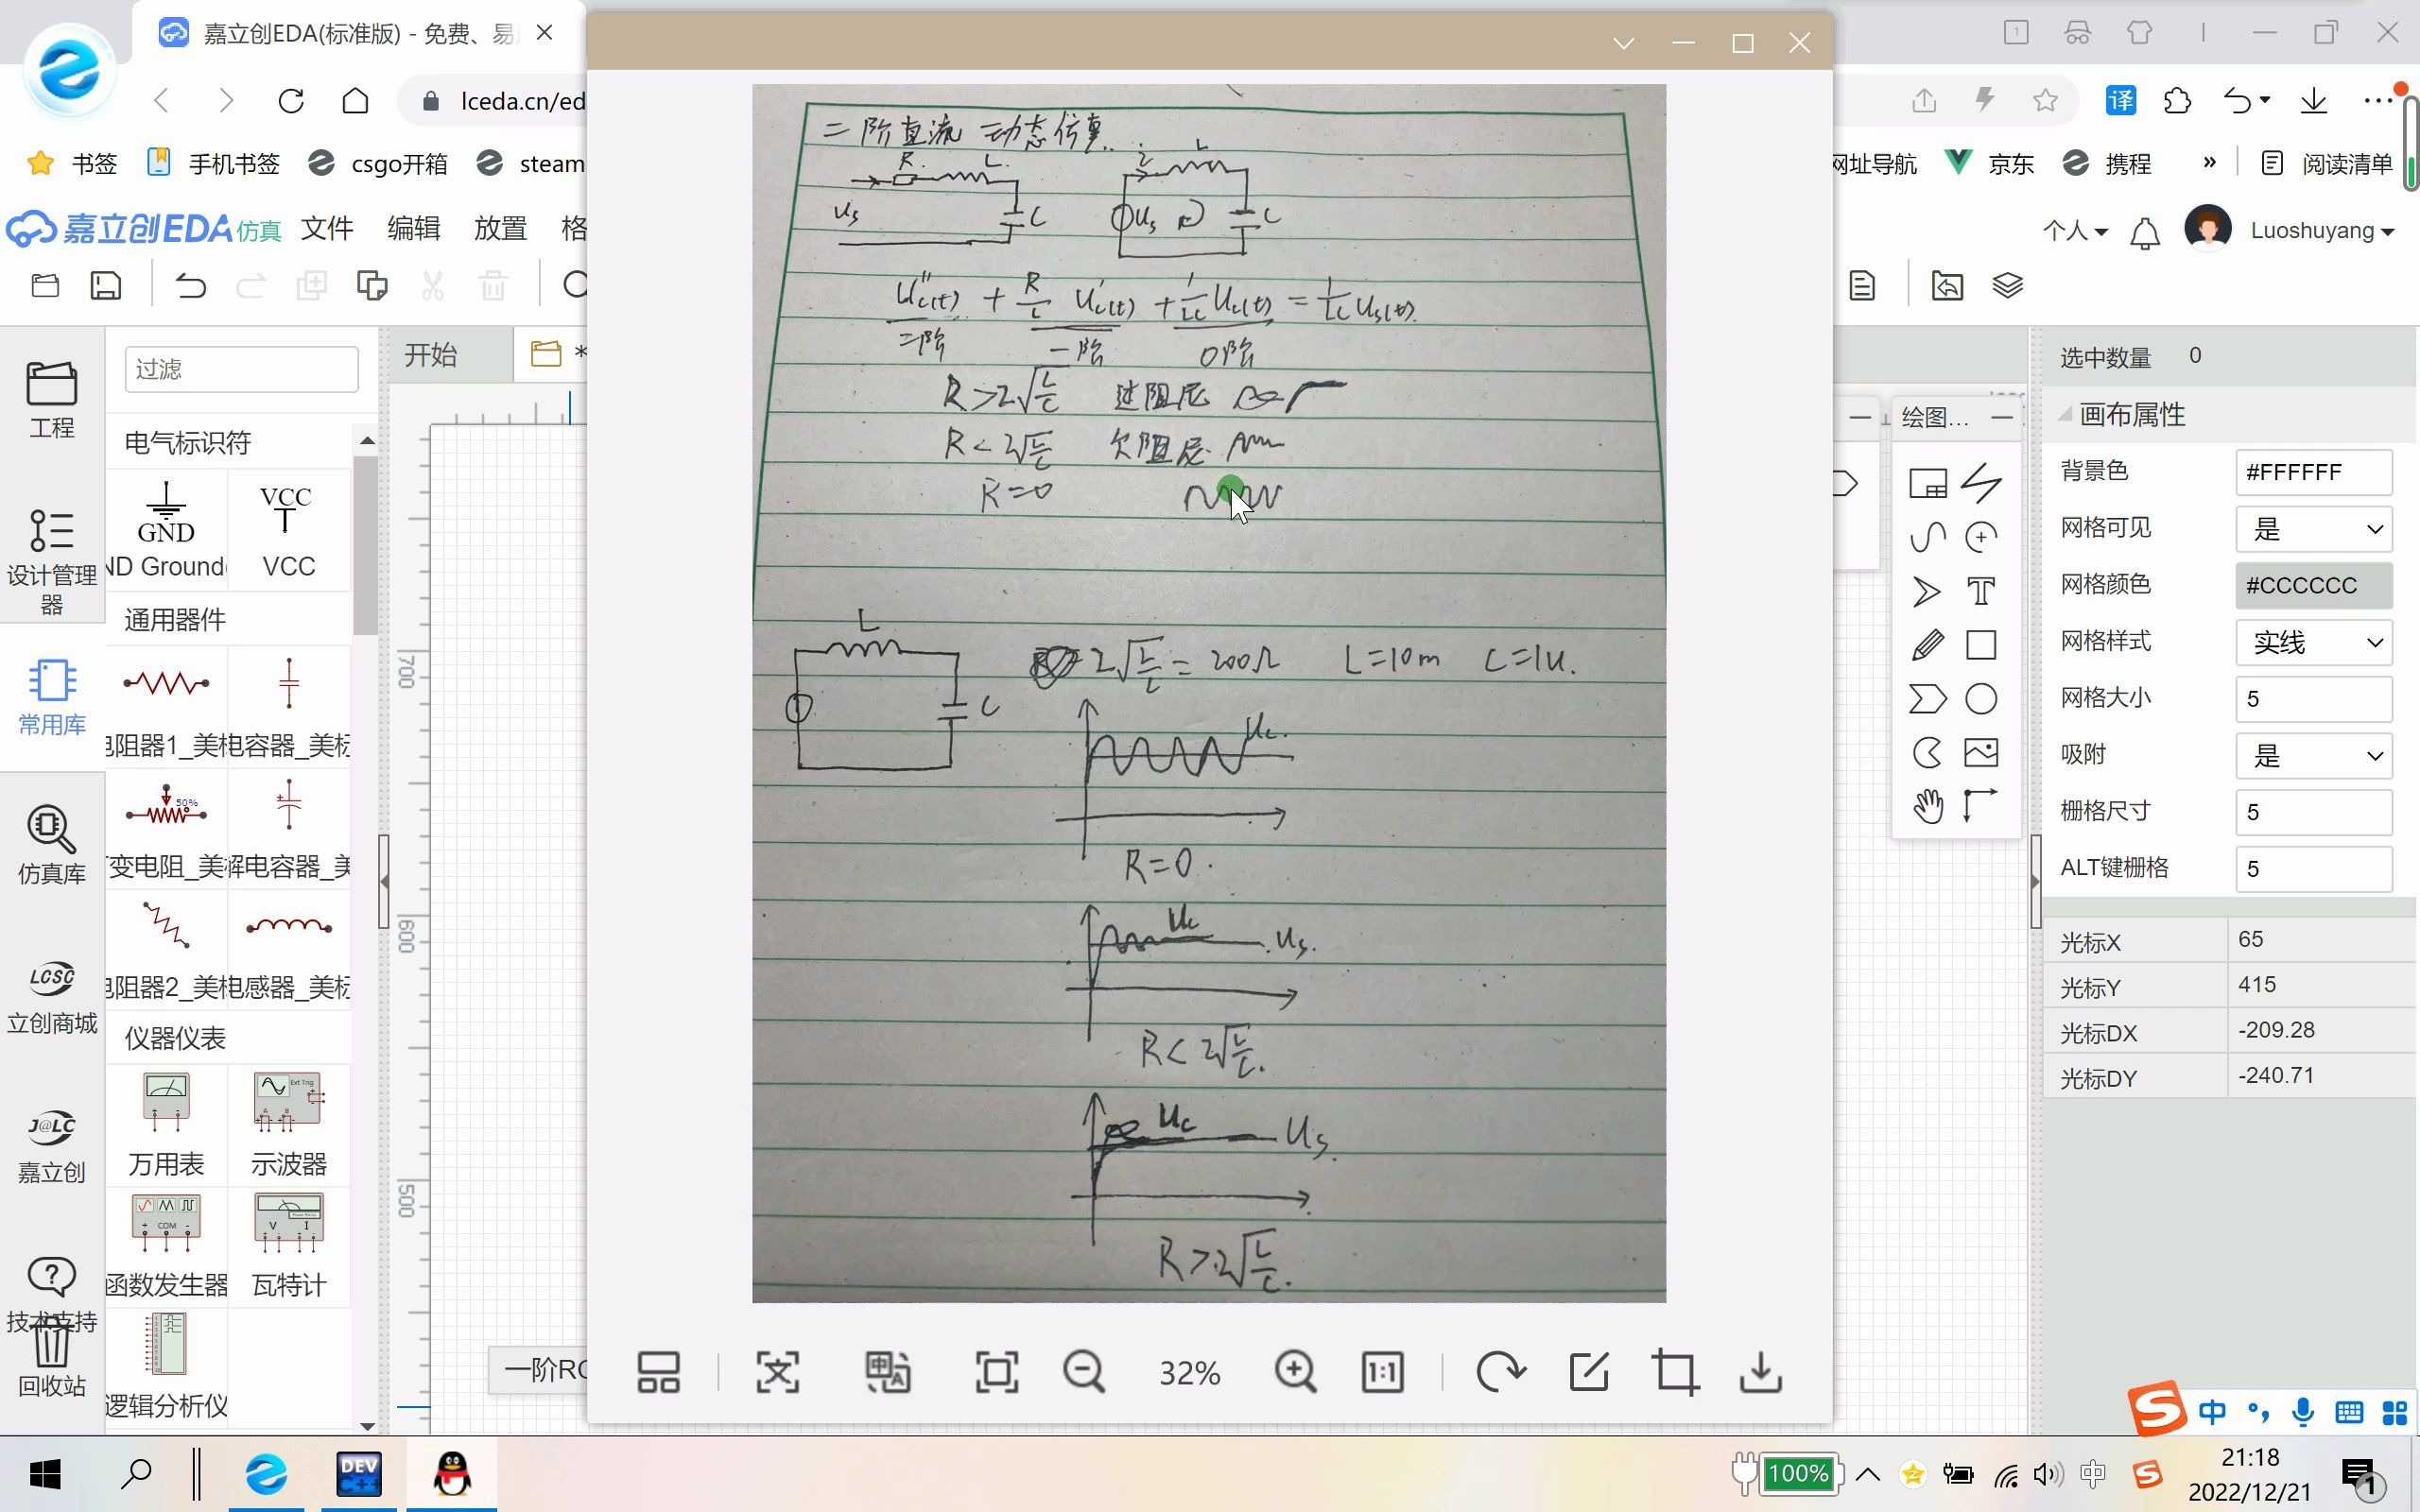 嘉立创EDA(标准版) - 免费、易
lceda.cn/ed
书签 手机书签 csgo开箱 steam
网址导航 京东 携程 » 阅读清单
嘉立创EDA仿真 文件 编辑 放置 格
个人 Luoshuyang
工程
设计管理器
常用库
仿真库
LCSC
立创商城
J@LC
嘉立创
技术支持
回收站
过滤
电气标识符
GND
VCC
ND Ground
VCC
通用器件
电阻器1_美标 电容器_美标
50%
变电阻_美 解电容器_美
电阻器2_美标 电感器_美标
仪器仪表
Ext Trig
A B
万用表 示波器
COM
V I
函数发生器 瓦特计
逻辑分析仪
开始 *
700
600
500
一阶RC
二阶直流 动态仿真..
R. L.
us C
i L
Us C
U''c(t) + R/L U'c(t) + 1/LC Uc(t) = 1/LC Us(t).
二阶 一阶 0阶
R>2√L/C 过阻尼
R<2√L/C 欠阻尼.
R=0
L
C
2√L/C = 200Ω L=10m C=1u.
Uc.
R=0.
Uc
Us.
R<2√L/C.
Uc
Us.
R>2√L/C.
32%
1:1
译
绘图...
T
选中数量 0
画布属性
背景色 #FFFFFF
网格可见 是
网格颜色 #CCCCCC
网格样式 实线
网格大小 5
吸附 是
栅格尺寸 5
ALT键栅格 5
光标X 65
光标Y 415
光标DX -209.28
光标DY -240.71
S 中
DEV C++
100%
中
21:18
2022/12/21
1